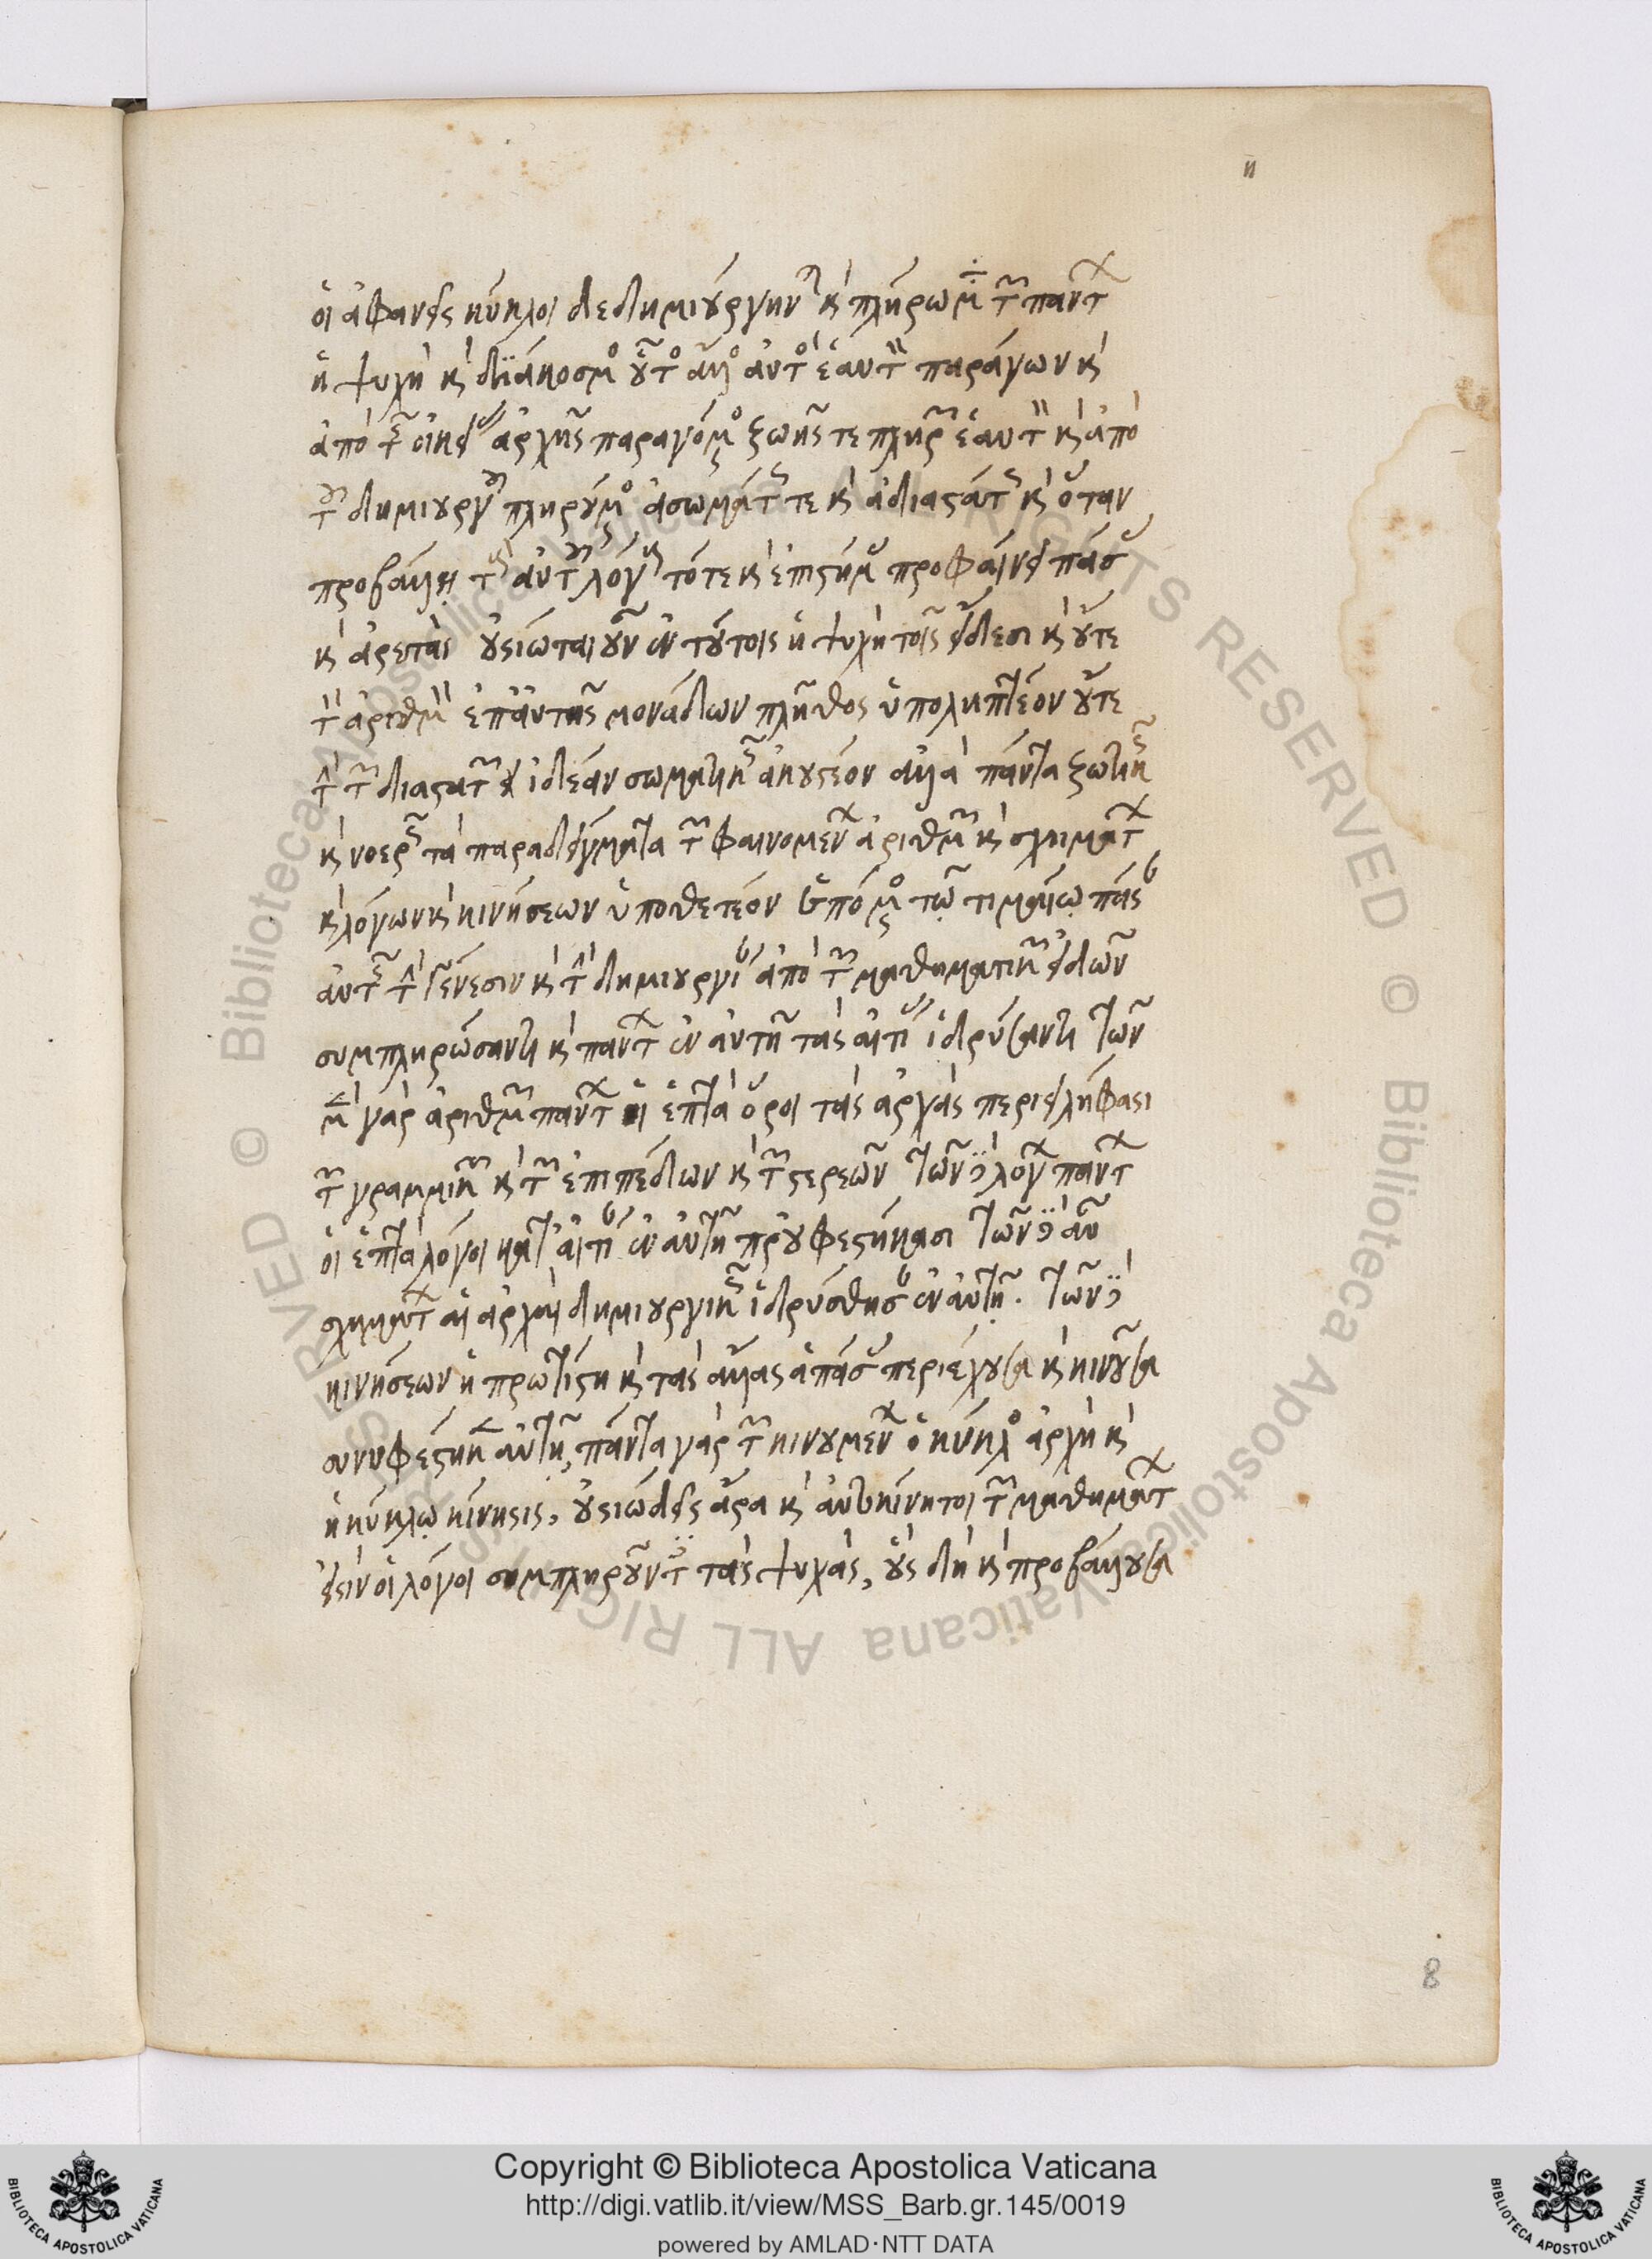 η
οἱ ἀφανεῖς κύκλοι δεδημιούργηνται καὶ πλήρωμα τῶν πάντων
ἡ ψυχὴ καὶ διάκοσμος οὗτος ἄλλος αὐτὸς ἑαυτὸν παράγων καὶ
ἀπὸ τῆς οἰκείας ἀρχῆς παραγόμενος ζωῆς τε πληρῶν ἑαυτὸν καὶ ἀπὸ
τοῦ δημιουργοῦ πληρούμενος ἀσωμάτως τε καὶ ἀδιαστάτως καὶ ὅταν
προβάλλῃ τοὺς αὐτοῦ λόγους τότε καὶ ἐπιστήμας προφαίνει πάσας
καὶ ἀρετάς οὐσίωται οὖν ἐν τούτοις ἡ ψυχὴ τοῖς εἴδεσι καὶ οὔτε
τὸν ἀριθμὸν ἐπ' αὐτῆς μονάδων πλῆθος ὑποληπτέον οὔτε
τὴν τῶν διαστατῶν ἰδέαν σωματικῶς ἀκουστέον ἀλλὰ πάντα ζωτικῶς
καὶ νοερῶς τὰ παραδείγματα τῶν φαινομένων ἀριθμῶν καὶ σχημάτων
καὶ λόγων καὶ κινήσεων ὑποθετέον ἑπομένους τῷ τιμαίῳ πᾶσαν
αὐτῆς τὴν γένεσιν καὶ τὴν δημιουργίαν ἀπὸ τῶν μαθηματικῶν εἰδῶν
συμπληρώσαντι καὶ πάντων ἐν αὐτῇ τὰς αἰτίας ἱδρύσαντι τῶν
μὲν γὰρ ἀριθμῶν πάντων οἱ ἑπτὰ ὅροι τὰς ἀρχὰς περιειλήφασι
τῶν γραμμικῶν καὶ τῶν ἐπιπέδων καὶ τῶν στερεῶν τῶν δὲ λόγων πάντων
οἱ ἑπτὰ λόγοι κατ' αἰτίαν ἐν αὐτῇ προϋφεστήκασι τῶν δὲ αὖ
σχημάτων αἱ ἀρχαὶ δημιουργικῶς ἱδρύσθησαν ἐν αὐτῇ. τῶν δὲ
κινήσεων ἡ πρωτίστη καὶ τὰς ἄλλας ἁπάσας περιέχουσα καὶ κινοῦσα
συνυφέστηκεν αὐτῇ, πάντα γὰρ τῶν κινουμένων ὁ κύκλος ἀρχὴ καὶ
ἡ κύκλῳ κίνησις, οὐσιώδεις ἄρα καὶ αὐτοκίνητοι τῶν μαθημάτων
εἰσιν οἱ λόγοι συμπληροῦντες τὰς ψυχάς, οὓς δὴ καὶ προβάλλουσα
8
Copyright © Biblioteca Apostolica Vaticana
http://digi.vatlib.it/view/MSS_Barb.gr.145/0019
powered by AMLAD·NTT DATA